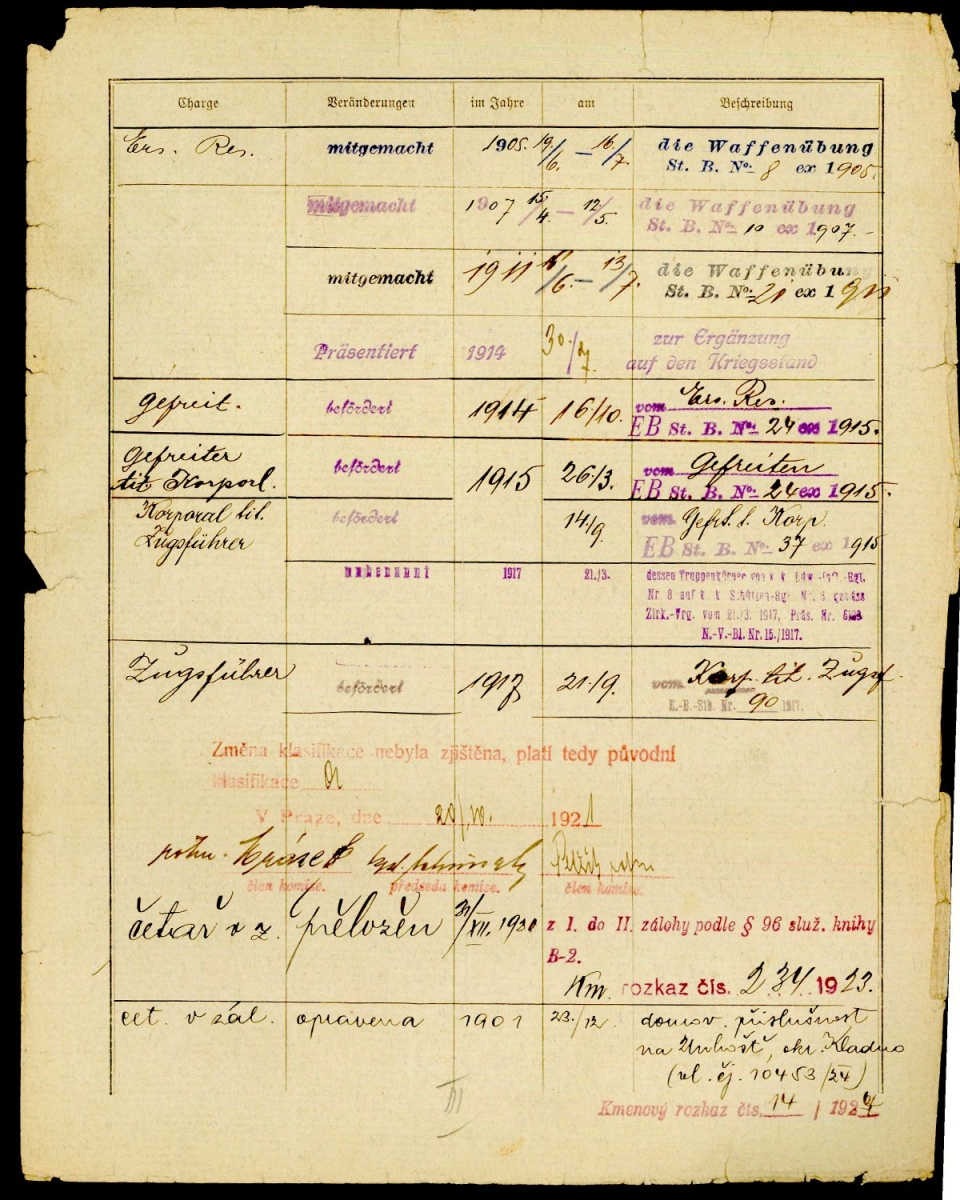 Charge Veränderungen im Jahre am Beschreibung
Ers. Res. mitgemacht 1905. 19/6. – 16/7. die Waffenübung
St. B. No. 8 ex 1905.
mitgemacht 1907 15/4. – 12/5. die Waffenübung
St. B. No. 10 ex 1907.-
mitgemacht 1911 /6. – 13/7. die Waffenübung
St. B. No. 21 ex 1911
Präsentiert 1914 30./7. zur Ergänzung
auf den Kriegsstand
Gefreit. befördert 1914 16/10. vom Ers. Res.
EB St. B. No. 24 ex 1915.
Gefreiter befördert 1915 26./3. vom Gefreiten
tit Korporl. EB St. B. No. 24 ex 1915.
Korporal tit. befördert 14/9. vom Gefrt. t. Korp.
Zugsführer EB St. B. No. 37 ex 1915
1917 21./3. dessen Truppenkörper von k. k. Ldw.-Inf.-Rgt.
Nr. 8 auf k. k. Schützen-Rgt. Nr. 8 gemäss
Zirk.-Vrg. vom 21/3. 1917, Präs. Nr.
N.-V.-Bl. Nr. 15./1917.
Zugsführer befördert 1917 21./9. vom Korp. tit. Zugsf.
E.-B.-Stb. Nr. 90 1917.
Změna klasifikace nebyla zjištěna, platí tedy původní
klasifikace A
V Praze, dne 20/ 1921
člen komise. předseda komise. člen komise.
četař v z. přeložen 31/XII. 1920 z I. do II. zálohy podle § 96 služ. knihy
B-2.
Km. rozkaz čís. 234 1923.
čet. v zál. opravena 1901 23./12 domov. příslušnost
na Unhošť, okr. Kladno
(vl. čj. 10453/24)
Kmenový rozkaz čís. 14 / 1924
III